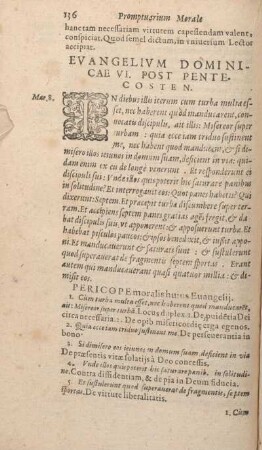 136 Promptuarium Morale
hanc tam necessariam virtutem capessendam valent,
conspiciat. Quod semel dictum, in vniuersum Lector
accipiat.
EVANGELIVM DOMINI-
CAE VI. POST PENTE-
COSTEN.
Mar. 8. IN diebus illis iterum cum turba multa es-
set, nec haberent quod manducarent, con-
uocatis discipulis, ait illis: Misereor super
turbam: quia ecce iam triduo sustinent
me, nec habent quod manducent, & si di-
misero illos ieiunos in domum suam, deficient in via: qui-
dam enim ex eis de longe venerunt. Et responderunt ei
discipuli sui: Vnde illos quis poterit hic saturare panibus
in solitudine? Et interrogauit eos: Quot panes habetis? Qui
dixerunt: Septem. Et præcepit turbæ discumbere super ter-
ram. Et accipiens septem panes gratias agens fregit, & da-
bat discipulis suis, vt apponerent, & apposuerunt turbæ. Et
habebant pisciculos paucos: & ipsos benedixit, & iussit appo-
ni. Et manducauerunt & saturati sunt: & sustulerunt
quod superauerat de fragmentis septem sportas. Erant
autem qui manducauerant quasi quatuor millia: & di-
misit eos.
PERICOPE moralis huius Euangelij.
1. Cùm turba multa esset, nec haberent quod manducarent,
ait: Misereor super turbam. Locus duplex 1. De prouidētia Dei
circa necessaria. 2. De opib misericordiæ circa egenos.
2. Quia ecce iam triduo sustinent me. De perseuerantia in
bono.
3. Si dimisero eos ieiunos in domum suam deficient in via
De præsentis vitæ solatijs à Deo concessis.
4. Vnde illos quis poterit hic saturare panib. in solitudi-
ne. Contra diffidentiam, & de pia in Deum fiducia.
5. Et sustulerunt quod superauerat de fragmentis, septem
sportas. De virtute liberalitatis.
1. Cùm